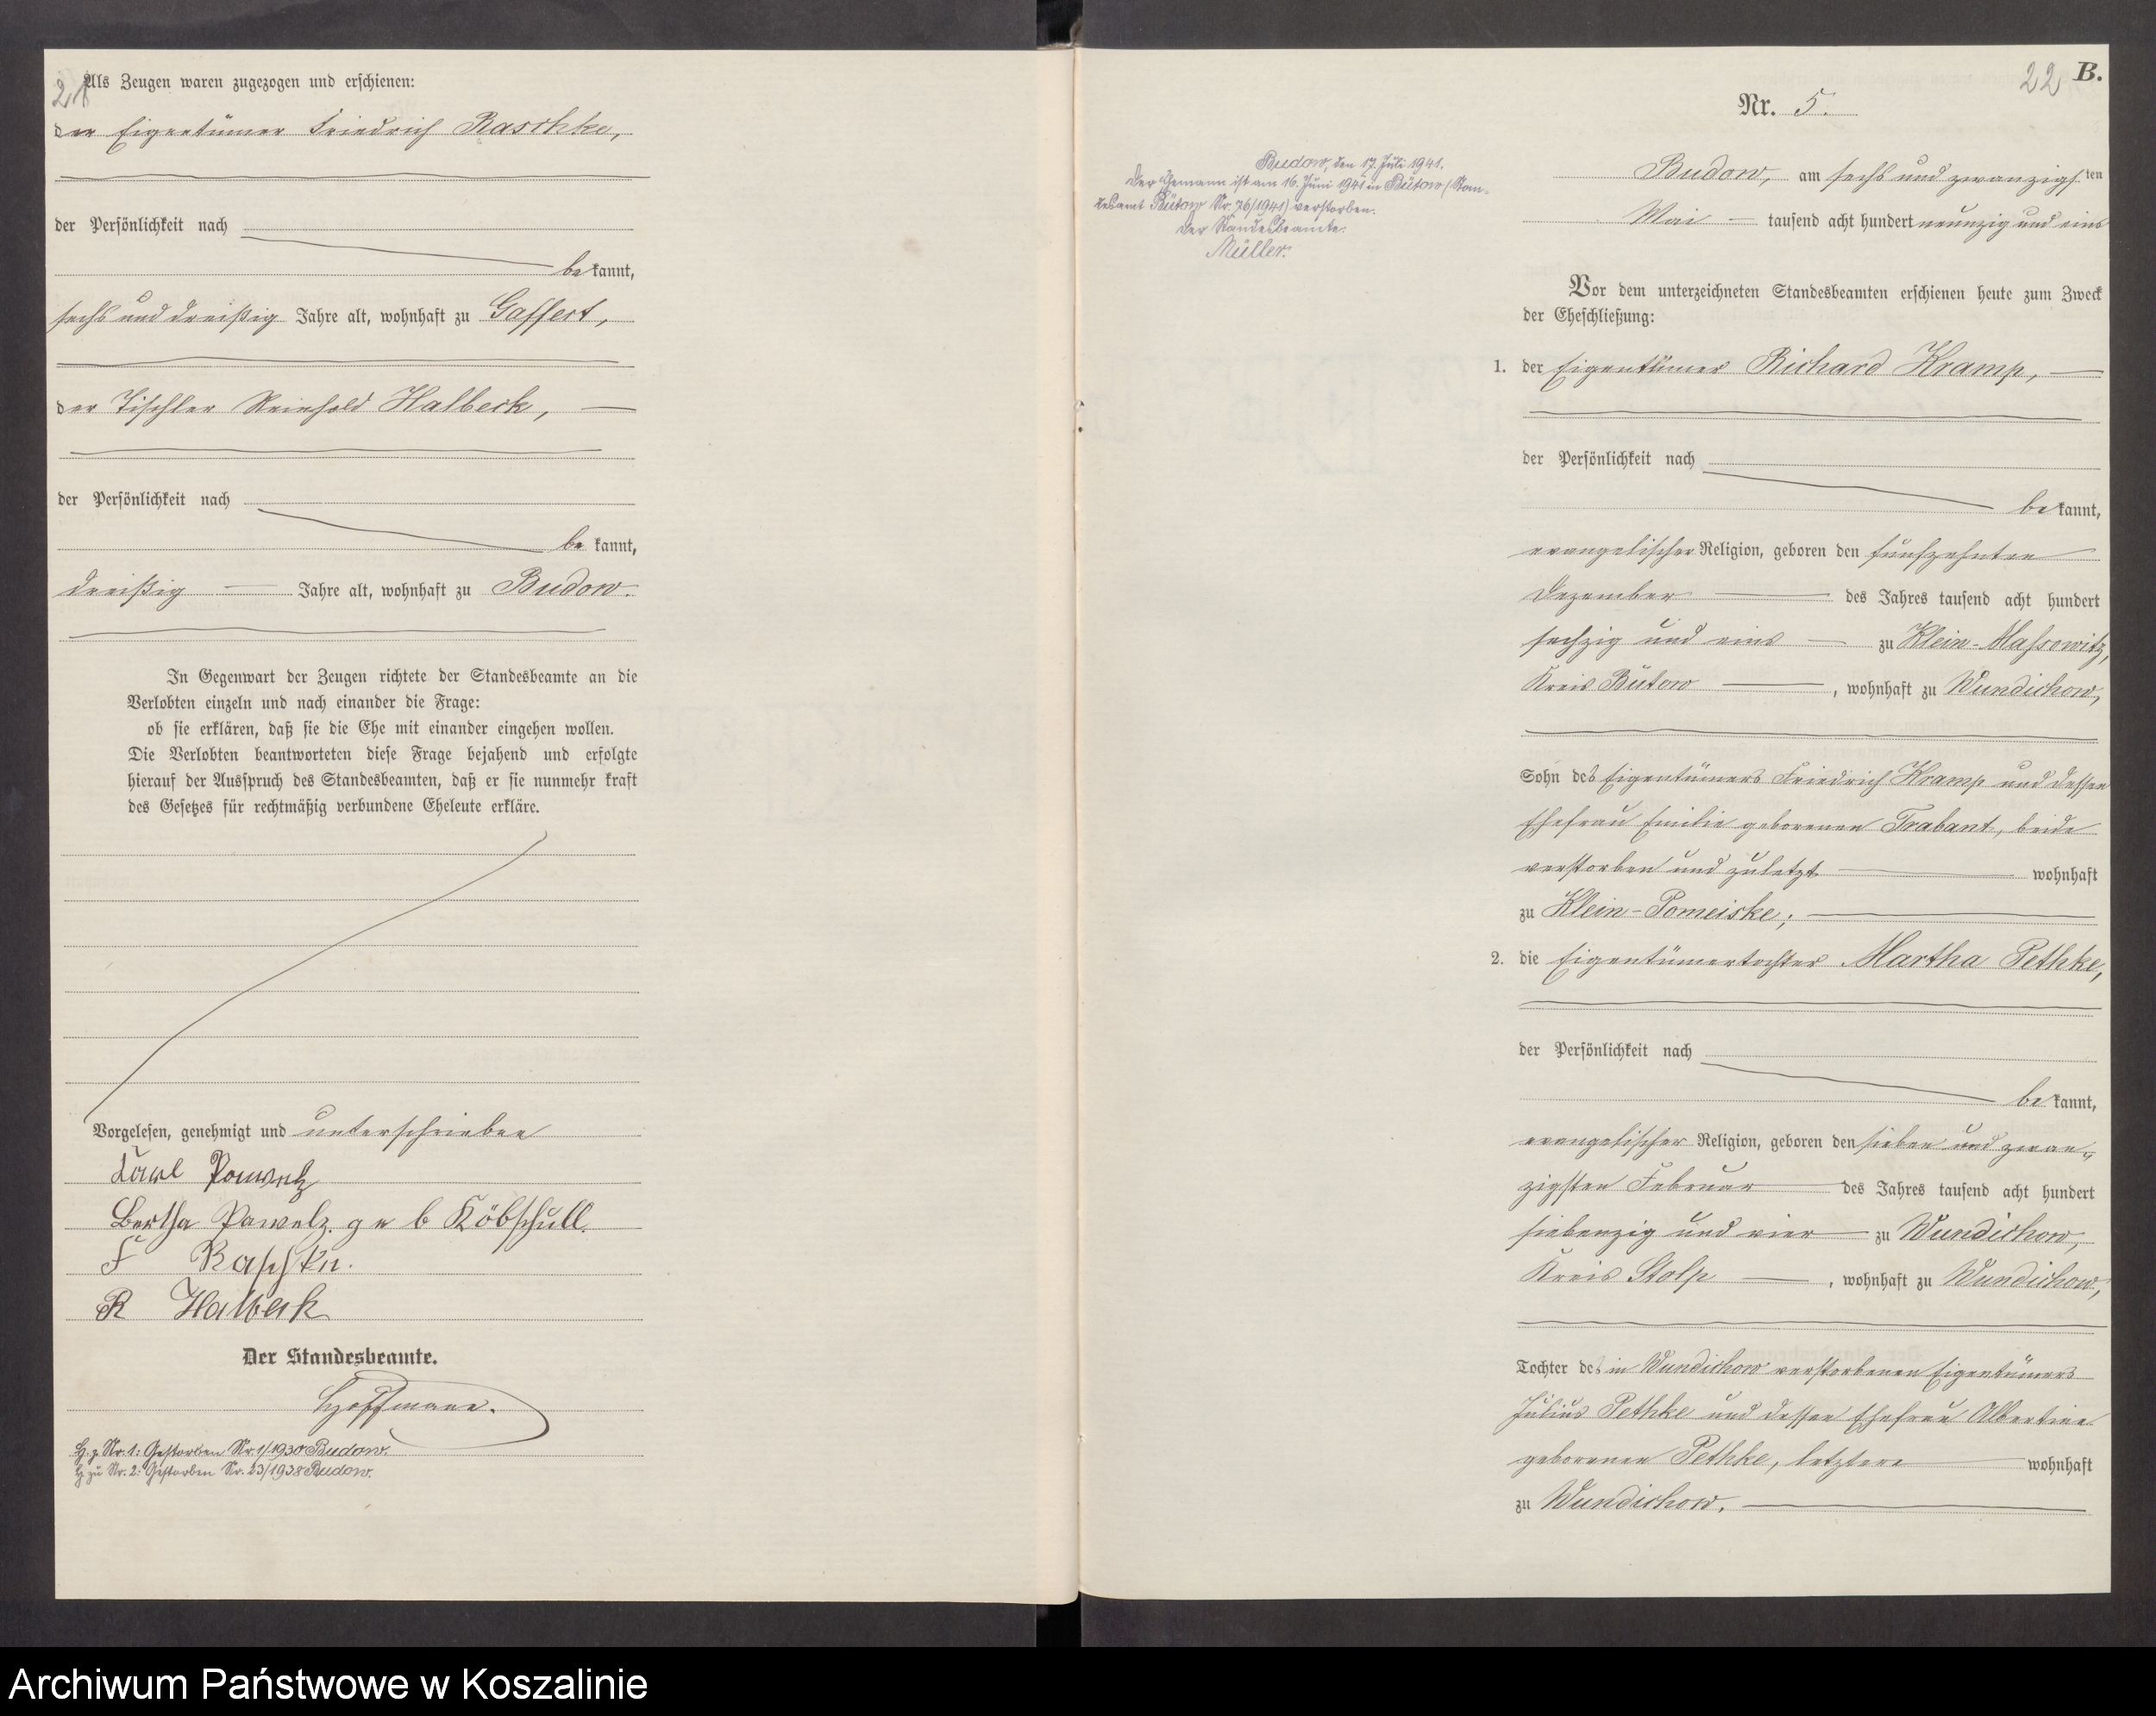 21
Als Zeugen waren zugezogen und erschienen:
der Eigentümer Friedrich Raschke,
der Persönlichkeit nach
bekannt,
sechs und dreißig Jahre alt, wohnhaft zu Gaffert,
der Tischler Reinhold Halbeck,
der Persönlichkeit nach
be kannt,
dreißig Jahre alt, wohnhaft zu Budow.
In Gegenwart der Zeugen richtete der Standesbeamte an die
Verlobten einzeln und nach einander die Frage:
ob sie erklären, daß sie die Ehe mit einander eingehen wollen.
Die Verlobten beantworteten diese Frage bejahend und erfolgte
hierauf der Ausspruch des Standesbeamten, daß er sie nunmehr kraft
des Gesetzes für rechtmäßig verbundene Eheleute erkläre.
Vorgelesen, genehmigt und unterschrieben
Karl Pawelz
Bertha Pawelz geb Köbschull.
F Raschke.
R Halbeck
Der Standesbeamte.
Hoffmann.
H. z. Nr. 1: Gestorben Nr. 1/1930 Budow.
H zu Nr. 2: Gestorben Nr. 23/1938 Budow.
22 B.
Nr. 5.
Budow, den 17. Juli 1941.
Der Ehemann ist am 16. Juni 1941 in Bütow (Stan-
desamt Bütow Nr. 76/1941) verstorben.
Der Standesbeamte:
Müller.
Budow, am sechs und zwanzigsten
Mai tausend acht hundert neunzig und eins
Vor dem unterzeichneten Standesbeamten erschienen heute zum Zweck
der Eheschließung:
1. der Eigentümer Richard Kramp,
der Persönlichkeit nach
bekannt,
evangelischer Religion, geboren den fünfzehnten
Dezember des Jahres tausend acht hundert
sechzig und eins zu Klein-Massowitz,
Kreis Bütow, wohnhaft zu Wundichow,
Sohn des Eigentümers Friedrich Kramp und dessen
Ehefrau Emilie geborenen Trabant, beide
verstorben und zuletzt wohnhaft
zu Klein-Pomeiske;
2. die Eigentümertochter Martha Pethke,
der Persönlichkeit nach
bekannt,
evangelischer Religion, geboren den sieben und zwan-
zigsten Februar des Jahres tausend acht hundert
siebenzig und vier zu Wundichow,
Kreis Stolp, wohnhaft zu Wundichow,
Tochter des in Wundichow verstorbenen Eigentümers
Julius Pethke und dessen Ehefrau Albertine
geborenen Pethke, letztere wohnhaft
zu Wundichow.
Archiwum Państwowe w Koszalinie